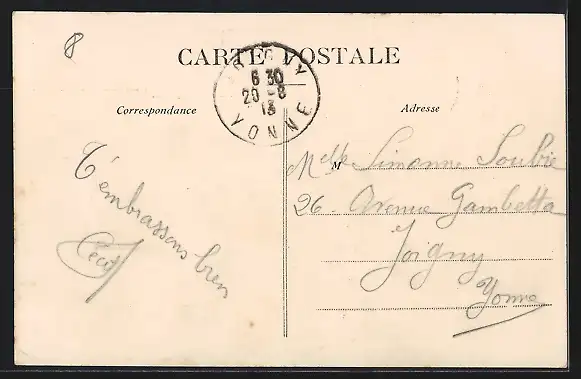 8
CARTE POSTALE
JOIGNY
6 30
20 -8
13
YONNE
Correspondance
Adresse
T'embrassons bien
Cécile
M Melle Simonne Soubie
26 Avenue Gambetta
Joigny
Yonne